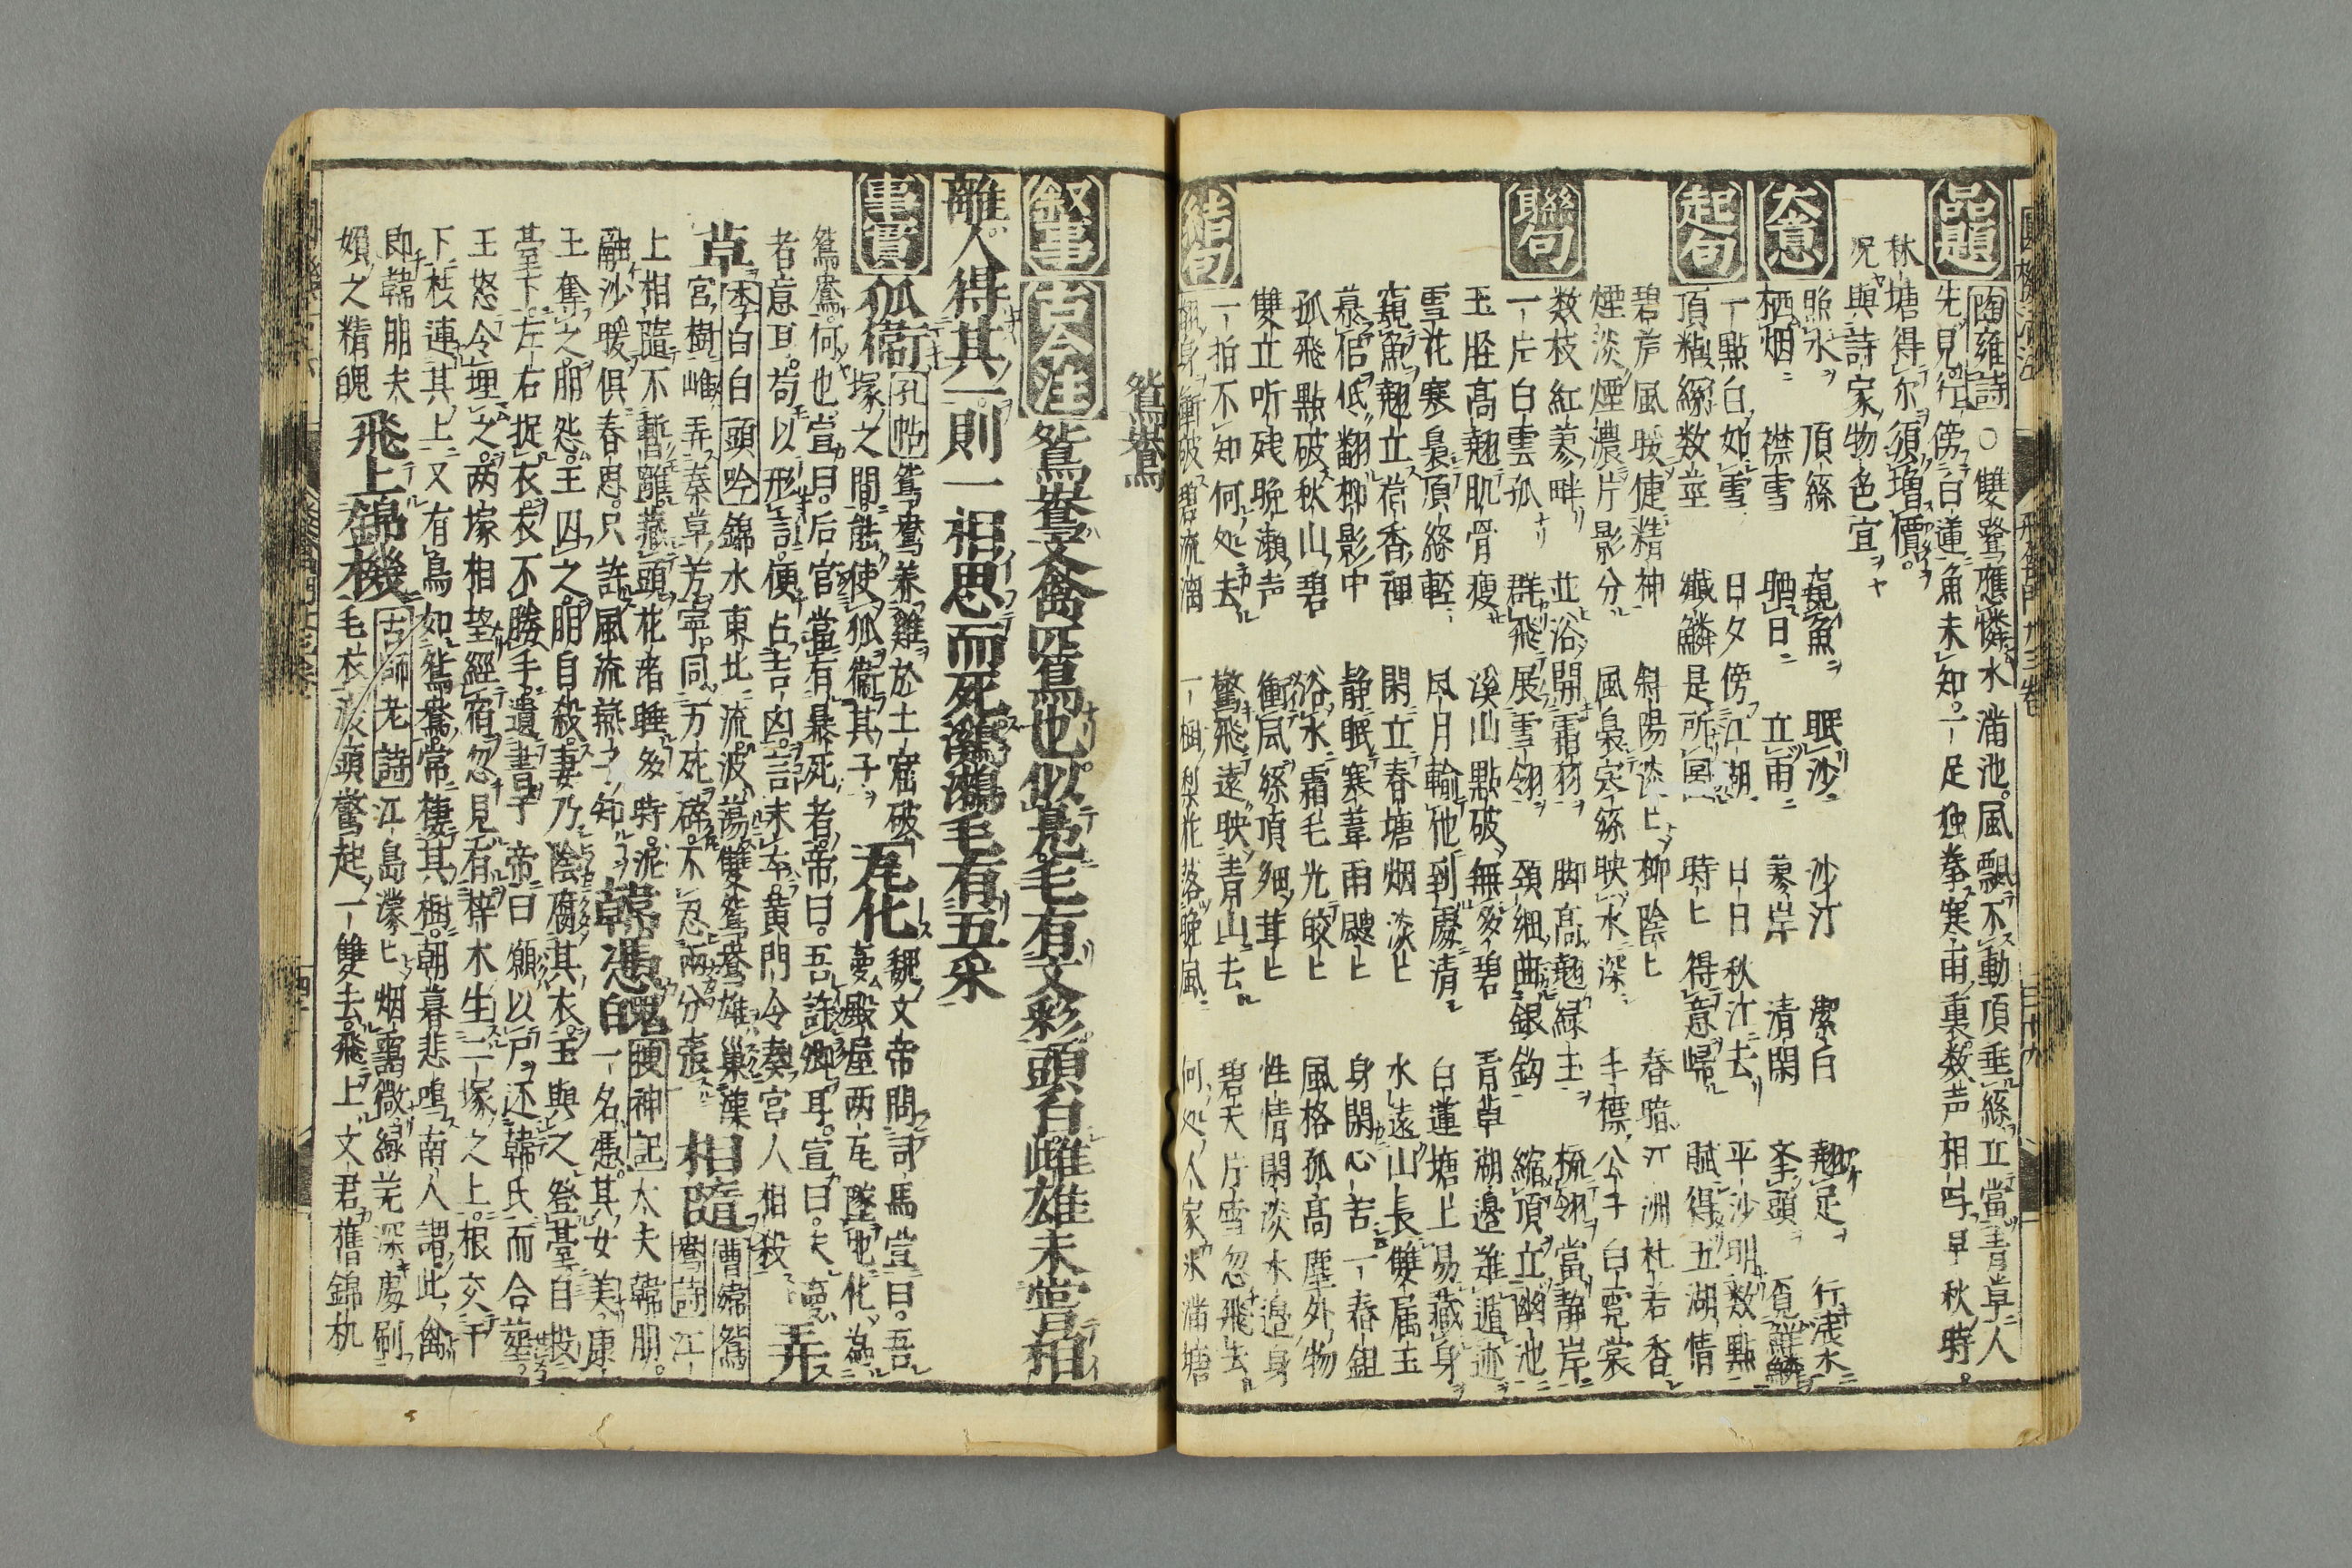 品題
陶雍詩
○雙鷺應憐水滿池風飄不動頂垂絲立當青草人
先見行傍白蓮魚未知一足独拳寒雨裏数声相叫早秋時
林塘得尓須増價
況與詩家物色宜
大意
照水 頂絲 窺魚 眠沙 沙汀 潔白 翹足 行浅水
栖烟 襟雪 晒日 立雨 蓼岸 清閑 拳頭 覓鮮鱗
起句
一點白如雪 日夕傍江湖 日日秋汀去 平沙明数點
頂粘綹数莖 纎鱗是所 時匕得意歸 賦得五湖情
碧芦風暖倢精神 斜陽淡匕柳陰匕 春暗汀洲杜若香
煙淡煙濃片影分 風裊寒絲映水深 丰標公子白霓裳
聯句
数枝紅蓼畔 並浴開霜羽 脚高翹緑玉 梳翎當静岸
一片白雲孤 群飛展雪翎 頚細曲銀鈎 縮頂立幽池
玉脛高翹肌骨瘦 溪山點破無多碧 青草湖邊難遁迹
雪花寒裊頂絲輕 風月輸他到處清 白蓮塘上易藏身
窺魚翹立荷香裡 閑立春塘烟淡匕 水遠山長雙属玉
慕侶低翻柳影中 静眠寒葦雨颼匕 身閑心苦一舂鉏
孤飛點破秋山碧 浴水霜毛光皎匕 風格孤高塵外物
雙立听残晩瀬声 衝風絲頂細茸匕 性情閑淡水邊身
結句
一拍不知何处去 驚飛遠映青山去 碧天片雪忽飛去
翻身衝破碧流満 一樹梨花落晩風 何处人家水満塘
鴛鴦
叙事
古今注
鴛鴦文禽匹鳥也似鳧毛有文彩頭白雌雄未嘗相
離人得其一則一相思而死鸂鶒毛有五采
事實
狐衞
孔帖
鴛鴦養雞於土窟破
塚之間能使狐衞其子
瓦化
魏文帝問司馬宣曰吾
夢殿屋两瓦墜地化為
鴛鴦何也宣曰后宮當有暴死者帝曰吾許卿耳宣曰夫夢
者意耳苟以形言便占吉凶言未卒黄門令奏宮人相殺
弄
草
李白白頭吟
錦水東北流波蕩雙鴛鴦雄巢漢
宮樹雌弄秦草芳寧同万死碎不忍两分張
相隨
曹繻鴛
鴦詩
江
上相隨不暫離蔵頭花渚睡多時泥
融沙暖俱春思只許風流燕子知
韓憑魄
搜神記
大夫韓朋
一名憑其女美康
王奪之朋怨王囚之朋自殺妻乃陰腐其衣王與之登臺自投
臺下左右捉衣衣不勝手遺書于帝曰願以尸还韓氏而合葬
王怒令埋之两塚相望經宿忽見有梓木生二塚之上根交于
下枝連其上又有鳥如鴛鴦常棲其樹朝暮悲鳴南人謂此禽
即韓朋夫
婦之精魄
飛上錦機
古師老詩
江島濛匕烟靄微緑芜深處刷
毛衣渡頭驚起一雙去飛上文君舊錦机